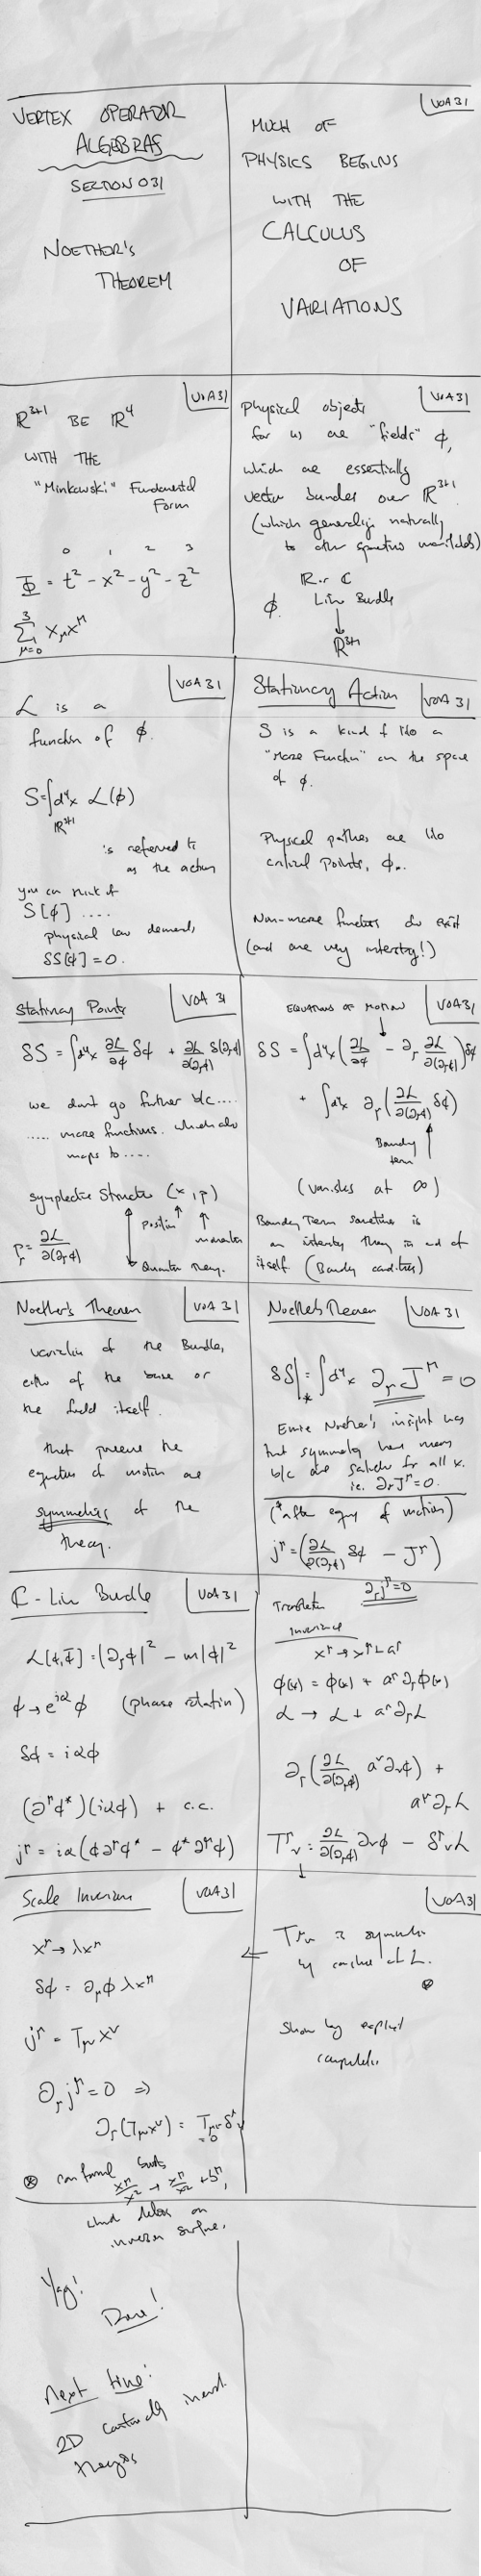 VERTEX OPERATOR
ALGEBRAS
SECTION 031
NOETHER'S
THEOREM
VOA 31
MUCH OF
PHYSICS BEGINS
WITH THE
CALCULUS
OF
VARIATIONS
VOA31
ℝ³⁺¹ BE ℝ⁴
WITH THE
"Minkowski" Fundamental
Form
0 1 2 3
Φ = t² - x² - y² - z²
3
Σ xμx^μ
μ=0
VOA31
Physical objects
for us are "fields" ϕ,
which are essentially
vector bundles over ℝ³⁺¹
(which generalize naturally
to other spacetime manifolds)
ℝ or ℂ
ϕ. Line Bundle
↓
ℝ³⁺¹
VOA 31
ℒ is a
function of ϕ.
S=∫d⁴x ℒ(ϕ)
ℝ³⁺¹
is referred to
as the action
you can think of
S[ϕ] ....
physical law demands
δS[ϕ] = 0.
Stationary Action
VOA 31
S is a kind of like a
"Morse Function" on the space
of ϕ.
Physical paths are like
critical points, ϕ*.
Non-morse functions do exist
(and are very interesting!)
Stationary Points
VOA 31
δS = ∫d⁴x ∂ℒ/∂ϕ δϕ + ∂ℒ/∂(∂μϕ) δ(∂μϕ)
we don't go further b/c ....
..... morse functions. which also
maps to ....
symplectic Structure (x, p)
position
momentum
pμ = ∂ℒ/∂(∂μϕ)
Quantum Theory.
EQUATIONS OF MOTION
VOA31
δS = ∫d⁴x (∂ℒ/∂ϕ - ∂μ ∂ℒ/∂(∂μϕ)) δϕ
+ ∫d⁴x ∂μ(∂ℒ/∂(∂μϕ) δϕ)
Boundary
term
(vanishes at ∞)
Boundary Term sometimes is
an interesting theory in and of
itself (Boundary conditions)
Noether's Theorem
VOA 31
variation of the Bundle,
either of the base or
the field itself.
that preserve the
equations of motion are
symmetries of the
theory.
Noether's Theorem
VOA 31
δS|* = ∫d⁴x ∂μJ^μ = 0
Emmie Noether's insight was
that symmetry
b/c are for all x.
i.e. ∂μJ^μ = 0.
(*after eqns of motion)
j^μ = (∂ℒ/∂(∂μϕ) δϕ - J^μ)
∂μj^μ = 0
ℂ - Line Bundle
VOA 31
ℒ[ϕ,ϕ̄] = |∂μϕ|² - m|ϕ|²
ϕ → e^{iα}ϕ (phase rotation)
δϕ = iαϕ
(∂^μϕ*)(iαϕ) + c.c.
j^μ = iα(ϕ∂^μϕ* - ϕ*∂^μϕ)
Translation
invariance
x^μ → x^μ + a^μ
ϕ(x) = ϕ(x) + a^μ∂μϕ(x)
ℒ → ℒ + a^μ∂μℒ
∂μ(∂ℒ/∂(∂μϕ) a^ν∂νϕ) +
a^μ∂μℒ
T^μν = ∂ℒ/∂(∂μϕ) ∂νϕ - δ^μνℒ
Scale Invariance
VOA31
x^μ → λx^μ
δϕ = ∂μϕ λx^μ
j^μ = Tμν x^ν
∂μj^μ = 0 ⇒
∂μ(Tμνx^ν) = Tμν δ^μν
= 0
⊗ conformal
x^μ/x² → x^μ/x² + b^μ,
on
inversion surface.
VOA31
Tμν is symmetric
by of ℒ.
⊗
Show by explicit
computation
Yay!
Done!
Next time!
2D conformally invariant
theories